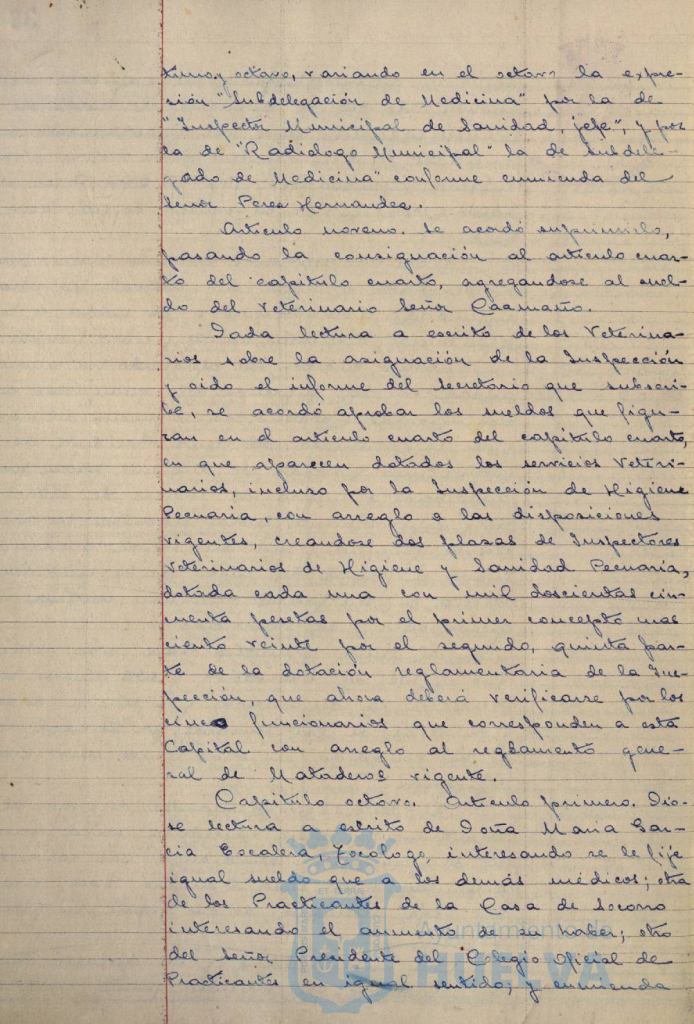 timo y octavo, variando en el octavo la expre-
sión "Subdelegación de Medicina" por la de
"Inspector Municipal de Sanidad, jefe", y por
la de "Radiologo Municipal" la de Subdele-
gado de Medicina" conforme enmienda del
Señor Perez Hernandez.
Articulo noveno. Se acordó suprimirlo,
pasando la consignación al articulo cuar-
to del capitulo cuarto, agregandose al suel-
do del Veterinario Señor Caamaño.
Dada lectura a escrito de los Veterina-
rios sobre la asignación de la Inspección
y oido el informe del Secretario que subscri-
be, se acordó aprobar los sueldos que figu-
ran en el articulo cuarto del capitulo cuarto,
en que aparecen dotados los servicios Veteri-
narios, incluso por la Inspección de Higiene
Pecuaria, con arreglo a las disposiciones
vigentes, creandose dos plazas de Inspectores
Veterinarios de Higiene y Sanidad Pecuaria,
dotada cada una con mil doscientas cin-
cuenta pesetas por el primer concepto mas
ciento veinte por el segundo, quinta par-
te de la dotación reglamentaria de la Ins-
pección, que ahora deberá verificarse por los
cinco funcionarios que corresponden a esta
Capital con arreglo al reglamento gene-
ral de Mataderos vigente.
Capitulo octavo. Articulo primero. Dio-
se lectura a escrito de Doña Maria Gar-
cia Escalera, Tocologo, interesando se le fije
igual sueldo que a los demás médicos; otra
de los Practicantes de la Casa de Socorro
interesando el aumento de su haber; otro
del Señor Presidente del Colegio Oficial de
Practicantes en igual sentido; y enmienda
Ayuntamiento de
HUELVA